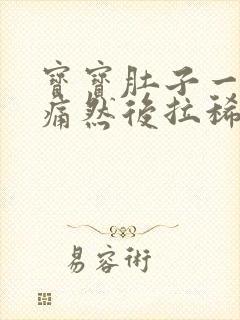 寶寶肚子一
痛然後拉稀
易容術